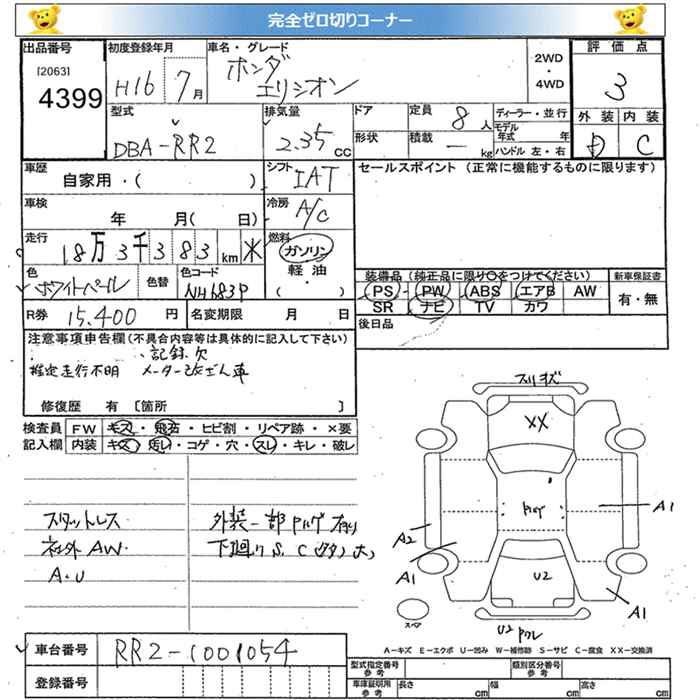 完全ゼロ切りコーナー
出品番号 初度登録年月 車名・グレード 評価点
[2063] H16 7月 ホンダ 2WD
4399 エリシオン ・ 3
4WD
型式 排気量 ドア 定員 8人 ディーラー・並行 外装 内装
DBA-RR2 2.35cc 形状 積載 - kg モデル年式 年 D C
ハンドル 左・右
車歴 シフト セールスポイント (正常に機能するものに限ります)
自家用・( ) IAT
車検 冷房
年 月( 日) A/C
走行 燃料
18万3千383km ※ ガソリン
軽油
( ・ )
色 色替 色コード 装備品(純正品に限り○をつけてください) 新車保証書
ホワイトパール NH683P PS・PW ABS エアB AW 有・無
SR ナビ TV カワ
R券 15,400円 名変期限 月 日 後日品
注意事項申告欄(不具合内容等は具体的に記入して下さい)
記録欠
推定走行不明 メーター改ざん車
修復歴 有 [箇所 ]
検査員 FW キズ・飛石・ヒビ割・リペア跡・×要
記入欄 内装 キズ・汚れ・コゲ・穴・スレ・キレ・破レ
スタットレス
社外AW.
A・U
外装一部ドアレ有り
下廻りS.C
スリキズ
XX
A1
A2
A1
U2
A1
U2
スペア
A-キズ E-エクボ U-凹み W-補修跡 S-サビ C-腐食 XX-交換済
車台番号 RR2-1001054
登録番号
型式指定番号 参考 類別区分番号 参考
車庫証明用 参考 長さ cm 幅 cm 高さ cm